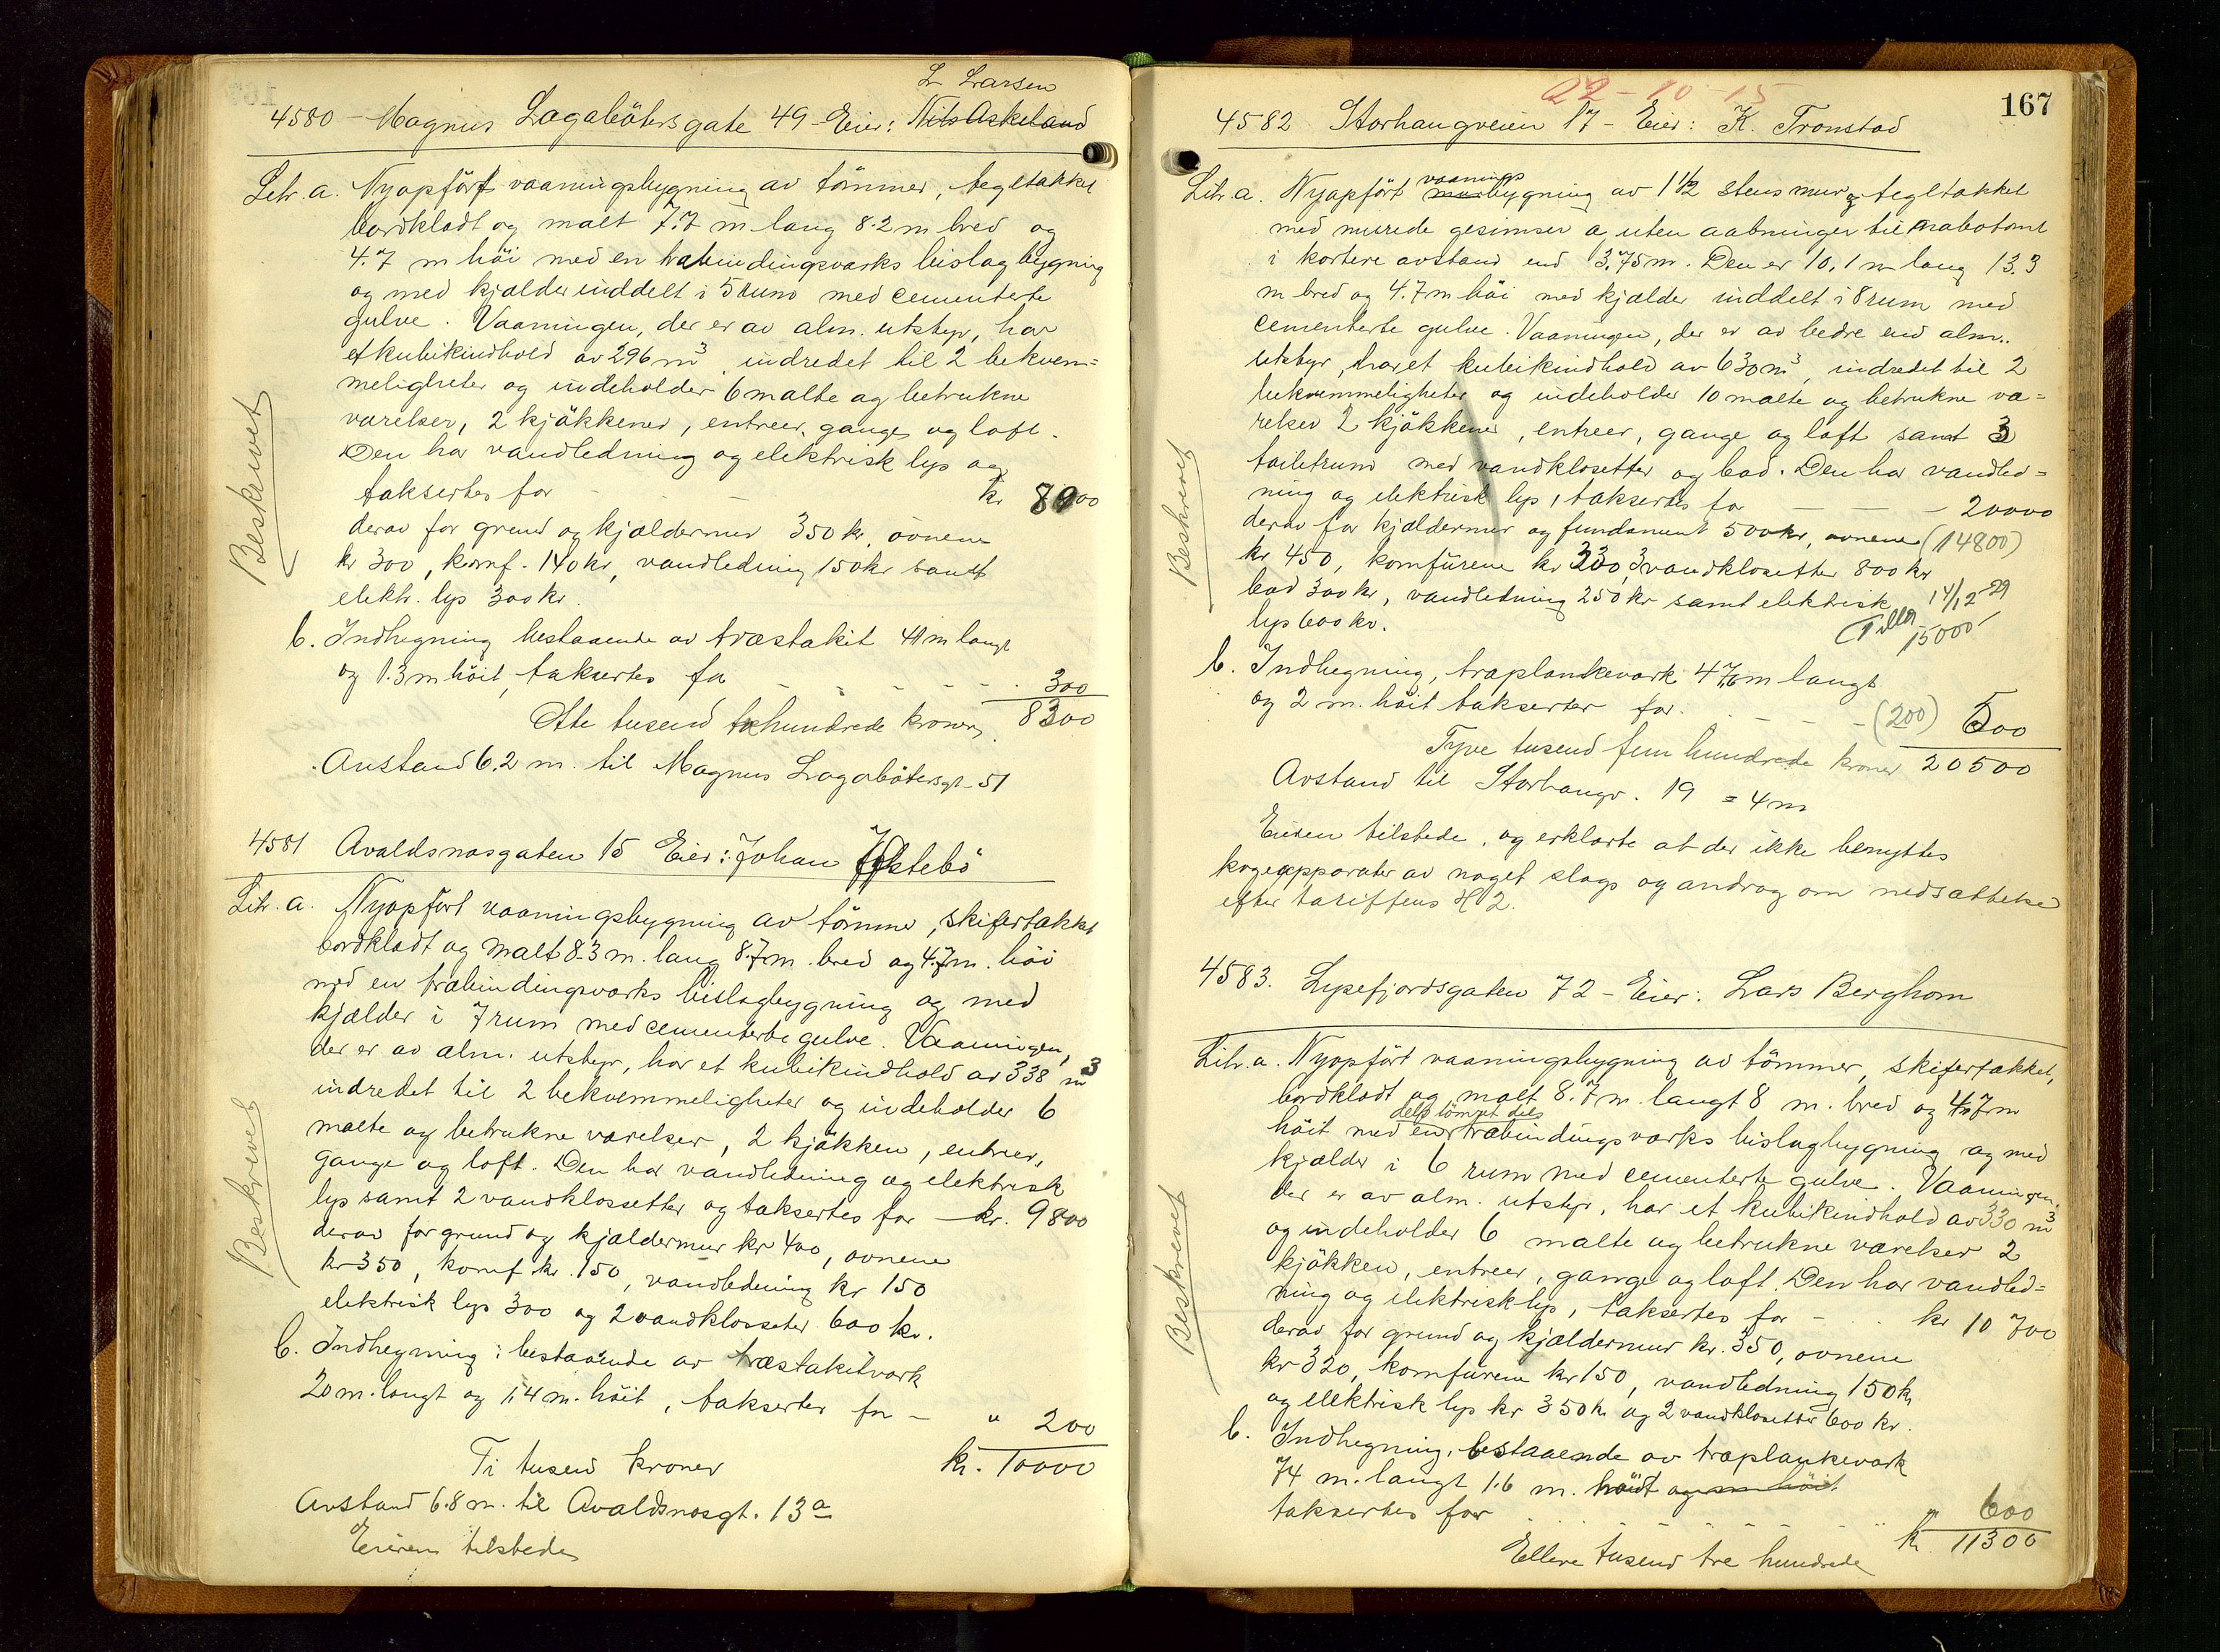 L Larsen
4580 – Magnus Lagabötersgate 49 – Eier: Nils Askeland
Litr. a. Nyopført vaaningsbygning av tömmer, tegltækket
bordklædt og malt 7.7 m lang 8.2 m bred og
4.7 m höi med en træbindingsværks bislagbygning
og med kjælder inddelt i 5 rum med cementerte
gulve. Vaaningen, der er av alm. utstyr, har
et kubikindhold av 296 m³, indredet til 2 bekvem=
meligheter og indeholder 6 malte og betrukne
værelser, 2 kjökkener, entreer, gange og loft.
Den har vandledning og elektrisk lys og
taksertes for – – kr 8000
derav for grund og kjældermur 350 kr, ovnene
kr 300, komf. 140 kr, vandledning 150 kr samt
elektr. lys 300 kr.
b. Indhegning bestaaende av træstakit 41 m langt
og 1.3 m höit, taksertes for – – – – – 300
Otte tusend trehundrede kroner 8300
Avstand 6.2 m. til Magnus Lagabötersgt. 51
Beskrevet
4581 Avaldsnæsgaten 15 Eier: Johan Jökstebö
Litr. a. Nyopfört vaaningsbygning av tömmer, skifertækket
bordklædt og malt 8.3 m. lang 8.7 m. bred og 4.7 m. höi
med en træbindingsværks bislagbygning og med
kjælder i 7 rum med cementerte gulve. Vaaningen,
der er av alm. utstyr, har et kubikindhold av 338 m³
indredet til 2 bekvemmeligheter og indeholder 6
malte og betrukne værelser, 2 kjökken, entreer,
gange og loft. Den har vandledning og elektrisk
lys samt 2 vandklossetter og taksertes for – kr. 9800
derav for grund og kjældermur kr 400, ovnene
kr 350, komf kr. 150, vandledning kr 150
elektrisk lys 300 og 2 vandklosseter 600 kr.
b. Indhegning: bestaaende av træstakitværk
20 m. langt og 1.4 m. höit, takserter for – " 200
Ti tusend kroner kr. 10000
Avstand 6.8 m. til Avaldsnæsgt. 13a
Eieren tilstede
Beskrevet
167
22-10-15
4582 Storhaugveien 17 – Eier: K. Tronstad
vaanings
Litr. a. Nyopfört murbygning av 1 1/2 stens mur og tegltækket
med murede gesimser og uten aabninger til nabotomt
i kortere avstand end 3.75 m. Den er 10.1 m lang 13.3
m bred og 4.7 m höi med kjælder inddelt i 8 rum med
cementerte gulve. Vaaningen, der er av bedre end alm.
utstyr, har et kubikindhold av 630 m³, indredet til 2
bekvemmeligheter og indeholder 10 malte og betrukne væ=
relser 2 kjökkener, entreer, gange og loft samt 3
toiletrum med vandklosetter og bad. Den har vandled=
ning og elektrisk lys, taksertes for – – – 20000
derav for kjældermur og fundament 500 kr, ovnene (14800)
kr 450, komfürene kr 330, 3 vandklosetter 800 kr
bad 300 kr, vandledning 250 kr samt elektrisk 14/12 29
lys 600 kr. Tillæg 15000
b. Indhegning, træplankeværk 47,6 m langt
og 2 m. höit takserter for – – – (200) 500
Tyve tusend fem hundrede kroner 20500
Avstand til Storhaugv. 19 = 4 m
Eieren tilstede, og erklærte at der ikke benyttes
kogeapparater av noget slags og androg om nedsættelse
efter tariffens H 2.
Beskrevet
4583. Lysefjordsgaten 72 – Eier: Lars Berghom
Litr. a. Nyopfört vaaningsbygning av tömmer, skifertækket,
bordklædt og malt 8.7 m. langt 8 m. bred og 4.7 m
dels tömret dels
höit med en træbindingsværks bislagbygning og med
kjælder i 6 rum med cementerte gulve. Vaaningen,
der er av alm. utstyr, har et kubikindhold av 330 m³
og indeholder 6 malte og betrukne værelser 2
kjökken, entreer, gange og loft. Den har vandled=
ning og elektrisk lys, taksertes for – kr 10 700
derav for grund og kjældermur kr. 350, ovnene
kr 320, komfürene kr 150, vandledning 150 kr
og elektrisk lys kr 350 kr og 2 vandklosetter 600 kr.
b. Indhegning, bestaaende av træplankeværk
74 m. langt 1.6 m. höit og m höit
taksertes for – – – – – – " 600
Elleve tusend tre hundrede kr 11300
Beskrevet